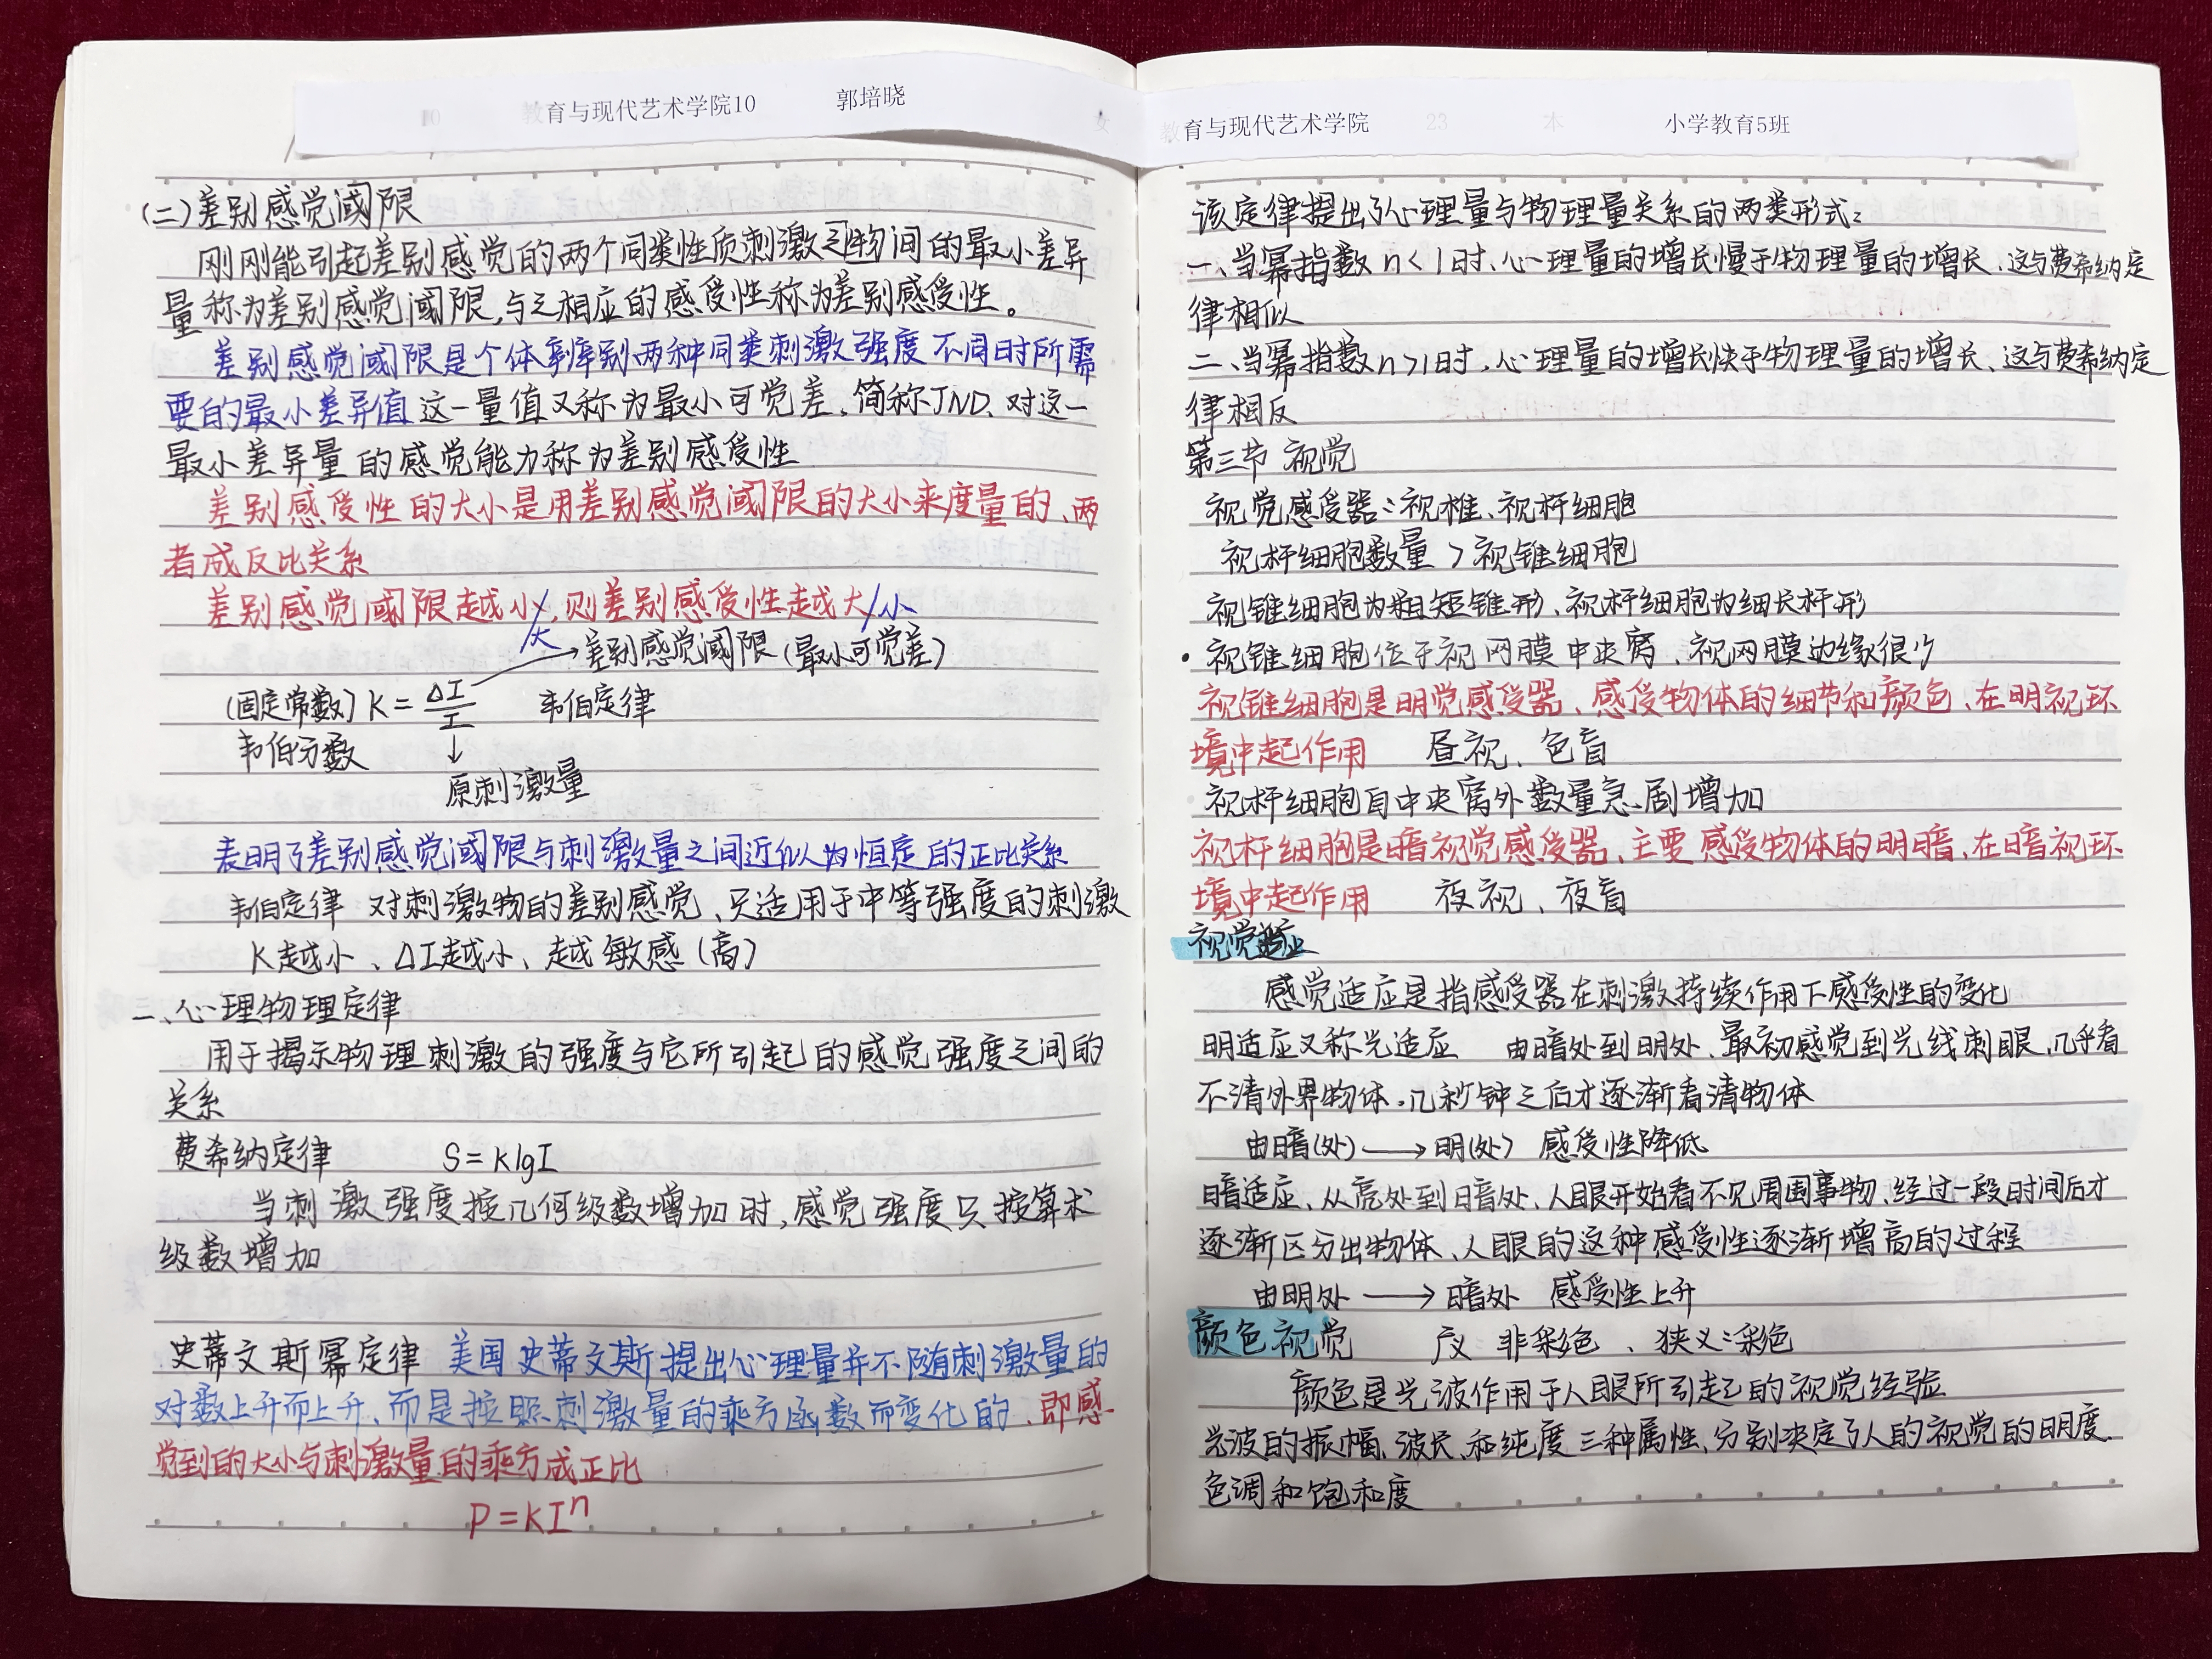 教育与现代艺术学院10 郭培晓 女
(二)差别感觉阈限
刚刚能引起差别感觉的两个同类性质刺激之物间的最小差异
量称为差别感觉阈限,与之相应的感受性称为差别感受性。
差别感觉阈限是个体辨别两种同类刺激强度不同时所需
要的最小差异值 这一量值又称为最小可觉差、简称JND、对这一
最小差异量的感觉能力称为差别感受性
差别感受性的大小是用差别感觉阈限的大小来度量的、两
者成反比关系
差别感觉阈限越小/大,则差别感受性越大/小
→差别感觉阈限(最小可觉差)
(固定常数) K = ΔI/I 韦伯定律
韦伯分数 ↓
原刺激量
表明了差别感觉阈限与刺激量之间近似为恒定的正比关系
韦伯定律 对刺激物的差别感觉、只适用于中等强度的刺激
K越小、ΔI越小、越敏感(高)
二、心理物理定律
用于揭示物理刺激的强度与它所引起的感觉强度之间的
关系
费希纳定律 S=KlgI
当刺激强度按几何级数增加时,感觉强度只按算术
级数增加
史蒂文斯幂定律 美国史蒂文斯提出心理量并不随刺激量的
对数上升而上升、而是按照刺激量的乘方函数而变化的、即感
觉到的大小与刺激量的乘方成正比
P=KIⁿ
教育与现代艺术学院 23 本 小学教育5班
该定律提出了心理量与物理量关系的两类形式:
一、当幂指数n<1时、心理量的增长慢于物理量的增长、这与费希纳定
律相似
二、当幂指数n>1时、心理量的增长快于物理量的增长、这与费希纳定
律相反
第三节 视觉
视觉感受器:视椎、视杆细胞
视杆细胞数量 > 视锥细胞
视锥细胞为粗短锥形、视杆细胞为细长杆形
·视锥细胞位于视网膜中央窝、视网膜边缘很少
视锥细胞是明觉感受器、感受物体的细节和颜色、在明视环
境中起作用 昼视、色盲
视杆细胞自中央窝外数量急剧增加
视杆细胞是暗视觉感受器、主要感受物体的明暗、在暗视环
境中起作用 夜视、夜盲
视觉适应
感觉适应是指感受器在刺激持续作用下感受性的变化
明适应又称光适应 由暗处到明处、最初感觉到光线刺眼、几乎看
不清外界物体。几秒钟之后才逐渐看清物体
由暗(处)→明(处) 感受性降低
暗适应、从亮处到暗处、人眼开始看不见周围事物、经过一段时间后才
逐渐区分出物体、人眼的这种感受性逐渐增高的过程
由明处→暗处 感受性上升
颜色视觉 广义 非彩色、狭义:彩色
颜色是光波作用于人眼所引起的视觉经验
光波的振幅、波长、和纯度三种属性、分别决定了人的视觉的明度、
色调和饱和度